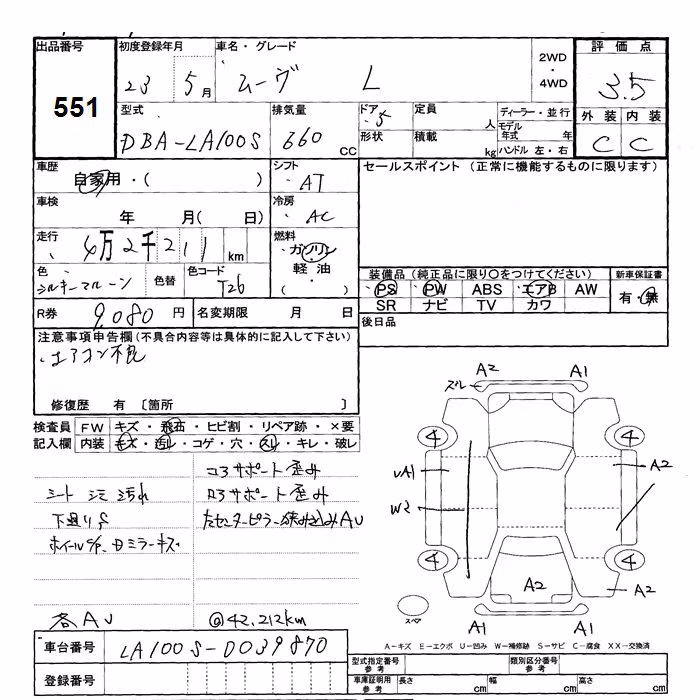 出品番号 初度登録年月 車名・グレード 2WD・4WD 評価点
551 23 5月 ムーヴ L 3.5
型式 排気量 ドア 定員 ディーラー・並行 外装 内装
DBA-LA100S 660 CC 5 人 モデル年式 年 C C
形状 積載 kg ハンドル 左・右
車歴 シフト セールスポイント (正常に機能するものに限ります)
自家用・( ) AT
車検 冷房
年 月( 日) AC
走行 燃料
4万2千211 km ガソリン
軽油
( )
色 色替 色コード 装備品 (純正品に限り○をつけてください) 新車保証書
シルキーマルーン T26 PS PW ABS エアB AW 有・無
SR ナビ TV カワ
R券 9,080 円 名変期限 月 日 後日品
注意事項申告欄 (不具合内容等は具体的に記入して下さい)
エアコン不良
修復歴 有 〔箇所 〕
検査員 FW キズ・飛石・ヒビ割・リペア跡・×要
記入欄 内装 キズ・汚れ・コゲ・穴・スレ・キレ・破レ
コアサポート歪み
シート シミ 汚れ
下廻りS
左センターピラー AU
各AU @42.212km
車台番号 LA100S-0039870
登録番号
A2 A1
ズレ
4 4
UA1 A2
W2
4 4
A2 A2
スペア
A1 A1
A-キズ E-エクボ U-凹み W-補修跡 S-サビ C-腐食 XX-交換済
型式指定番号 参考 類別区分番号 参考
車庫証明用 参考 長さ cm 幅 cm 高さ cm